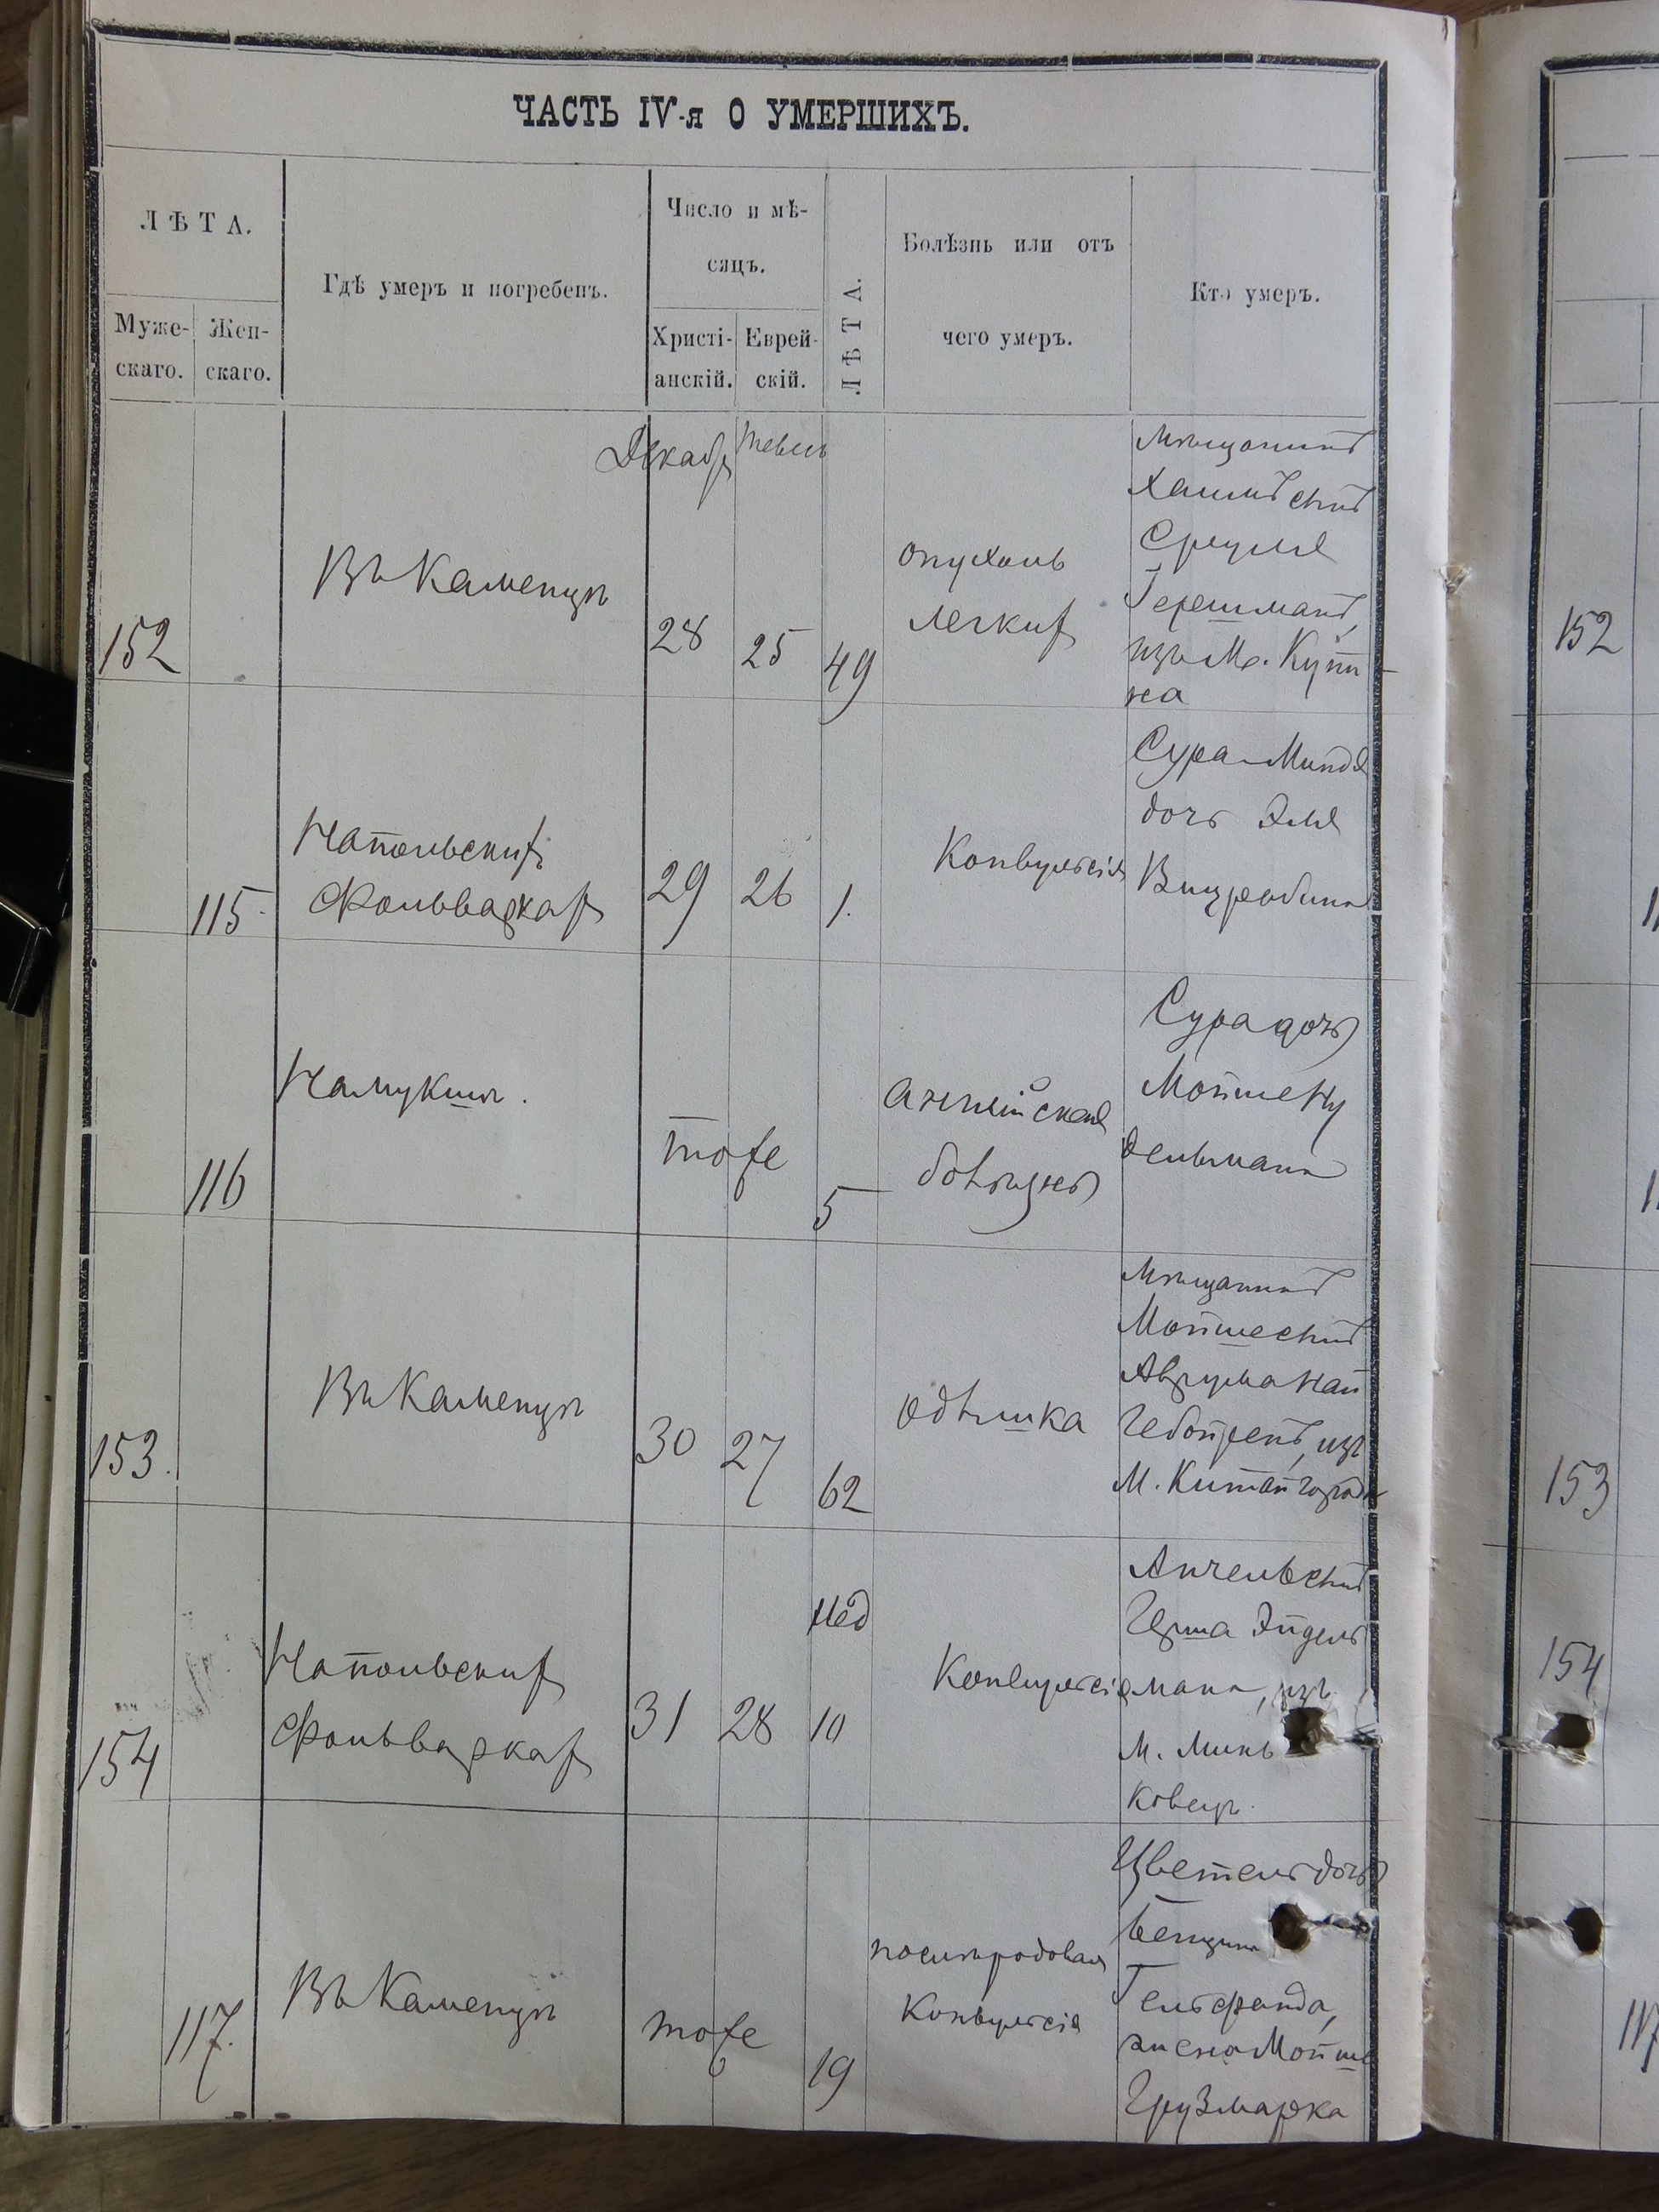 ЧАСТЬ IV-я О УМЕРШИХЪ.
ЛѢТА.
Муже-
скаго.
Жен-
скаго.
Гдѣ умеръ и погребенъ.
Число и мѣ-
сяцъ.
Христі-
анскій.
Еврей-
скій.
ЛѢТА.
Болѣзнь или отъ
чего умеръ.
Кто умеръ.
Декабр
тевесъ
152
Въ Каменцѣ
28
25
49
опухоль
легких
мѣщанинъ
Хаимъ сынъ
Сруля
Герешманъ,
изъ М. Купи
на
115
На польских
Фольварках
29
26
1.
Конвульсія
Сура-Миндя
дочь Эля
116
На
тоже
5
английская
болѣзнь
Сура дочь
Мойше Ну
дельмана
153.
Въ Каменцѣ
30
27
62
одѣшка
мѣщанинъ
Мойше сынъ
Аврума
изъ
М. Китайгорода
154
На польских
Фольварках
31
28
нед
10
Конвульсія
Анчель сынъ
Герша Эйдель
мана, изъ
М. Минь
ковецъ.
117.
Въ Каменцѣ
тоже
19
послѣродовая
Конвульсія
Цветель дочь
Бенциона
Гельфанда,
жена Мойше
Грузмарка
152
153
154
117